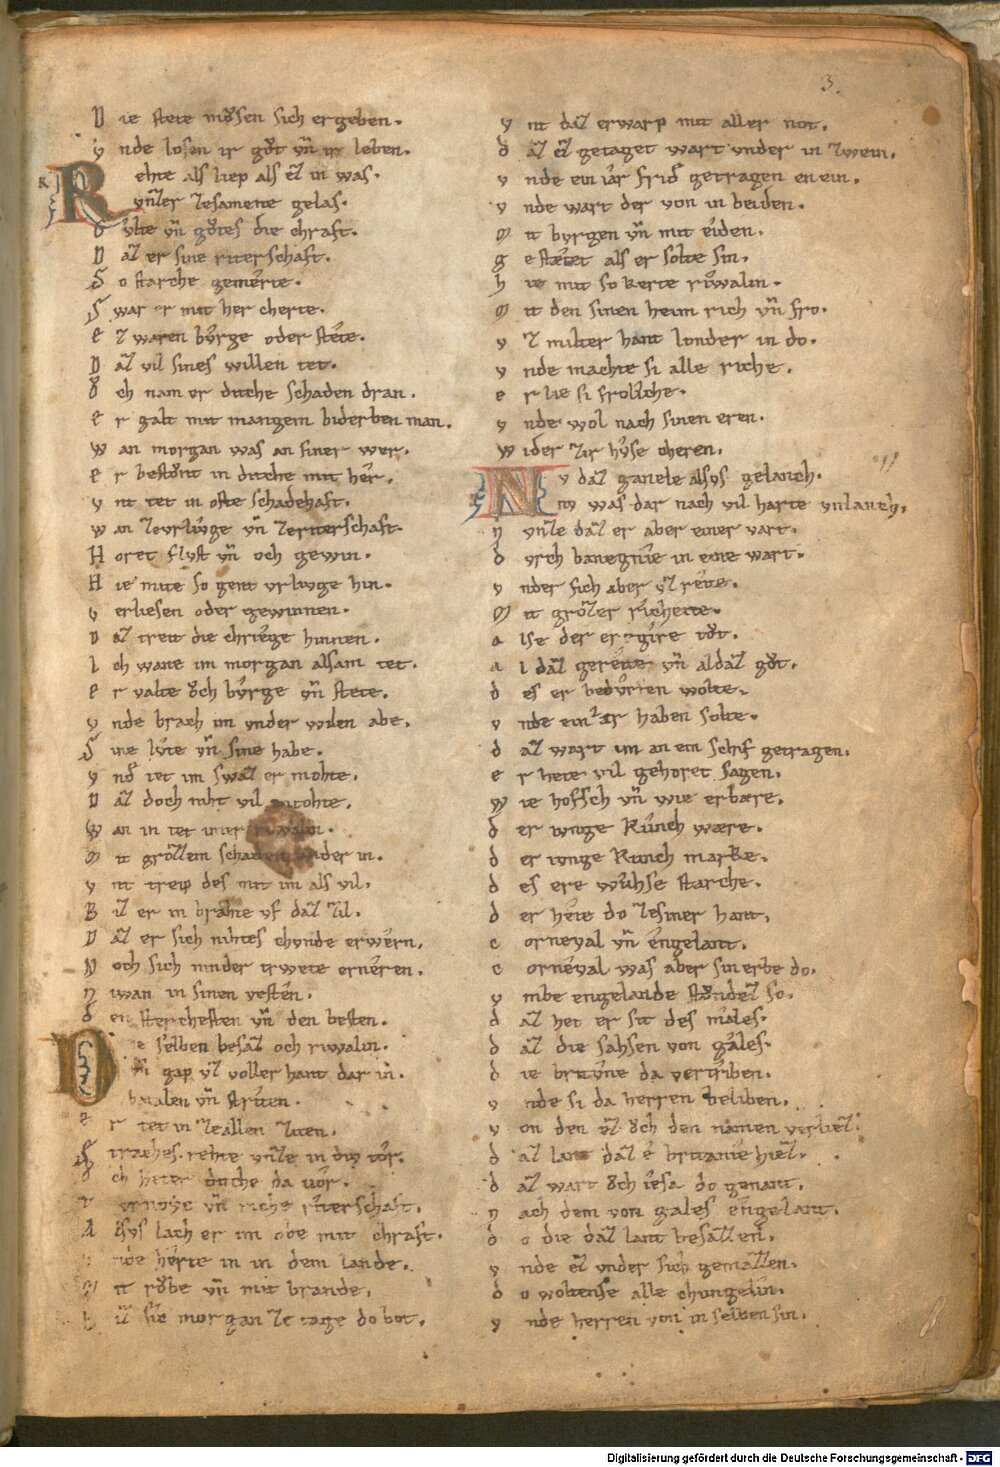 3.
D ie stete mꝟsen sich ergeben.
v nde losen ir gꝟt vn̄ ir leben.
R ehte als liep als eꝫ in was.
vnꝫer ꝫesamene gelas.
G vlte vn̄ gꝟtes die chraft.
D aꝫ er sine riterschaft.
S o starche gemerte.
S war er mit her cherte.
e ꝫ waren bvrge oder stete.
D aꝫ vil sines willen tet.
ꝟ ch nam er dicche schaden dran.
e r galt mit mangem biderben man.
w an morgan was an siner wer.
e r bestꝟnt in dicche mit her.
v nt tet in ofte schadehaft.
w an ꝫevrlvge vn̄ ꝫeriterschaft.
H oret flvst vn̄ och gewin.
H ie mite so gent vrlivge hin.
v erliesen oder gewinnen.
D aꝫ treit die chriege hinnen.
I ch wane im morgan alsam tet.
e r valte ꝟch bvrge vn̄ stete.
v nde brach im vnder wilen abe.
S ine lvte vn̄ sine habe.
v nd̄ tet im swaꝫ er mohte.
D aꝫ doch niht vil
W an in tet imer riwalin.
m it grꝟꝫem schaden wider in.
v nt treip des mit im als vil.
B iꝫ er in brahte vf daꝫ ꝫil.
D aꝫ er sich nihtes chvnde erwern.
N och sich ninder trwete erneren.
n iwan in sinen vesten.
d en sterchesten vn̄ den besten.
D ie selben besaꝫ och riwalin.
v n̄ gap vꝫ voller hant dar in.
vn̄ striten.
e r tet in ꝫeallen ꝫiten.
S traches rehte vnꝫe in div tor.
ꝟ ch heter dicche da vor.
vn̄ riche riterschaft.
A lsvs lach er im obe mit chraft.
v nde herte in in dem lande.
m it rꝟbe vn̄ mit brande.
b iꝫ sic morgan ꝫe tage do bot.
v nt daꝫ erwarp mit aller not.
d aꝫ eꝫ getaget wart vnder in ꝫwein.
v nde ein iar frid getragen en ein.
v nde wart der von in beiden.
m it byrgen vn̄ mit eiden.
g estætet als er solte sin.
h ie mit so kerte riwalin.
m it den sinen heim rich vn̄ fro.
v ꝫ milter hant londer in do.
v nde machte si alle riche.
e r lie si froliche.
v nde wol nach sinen eren.
w ider ꝫir hvse cheren.
N v daꝫ ganele alsvs gelanch.
nv was dar nach vil harte vnlanch.
n vnꝫe daꝫ er aber einer vart.
d vrch banegnie in eine wart.
v nder sich aber vꝫ reite.
m it grꝟꝫer richeite.
a lse der er gire tꝟt.
a l daꝫ gereite vn̄ aldaꝫ gꝟt.
d es er bedvrfen wolte.
v nde ein iar haben solte.
d aꝫ wart im an ein schif getragen.
e r hete vil gehoret sagen.
w ie hofsch vn̄ wie erbære.
d er ivnge Kvnch wære.
d er ivnge Kvnch marke.
d es ere wvhse starche.
d er hete do ꝫesiner hant.
c orneval vn̄ engelant.
c orneval was aber sin erbe do.
v mbe engelande stꝟndeꝫ so.
d aꝫ het er sit des males.
d aꝫ die sahsen von gales.
d ie britvne da vertriben.
v nde si da herren beliben.
v on den vꝫ ꝟch den namen verlieꝫ.
d aꝫ lant daꝫ e britanie hieꝫ.
d aꝫ wart ꝟch iesa do genant.
n ach dem von gales engelant.
d o die daꝫ lant besaꝫꝫen.
v nde eꝫ vnder sich gemaꝫꝫen.
d o woltense alle chvngelin.
v nde herren von in selben sin.
Digitalisierung gefördert durch die Deutsche Forschungsgemeinschaft - DFG